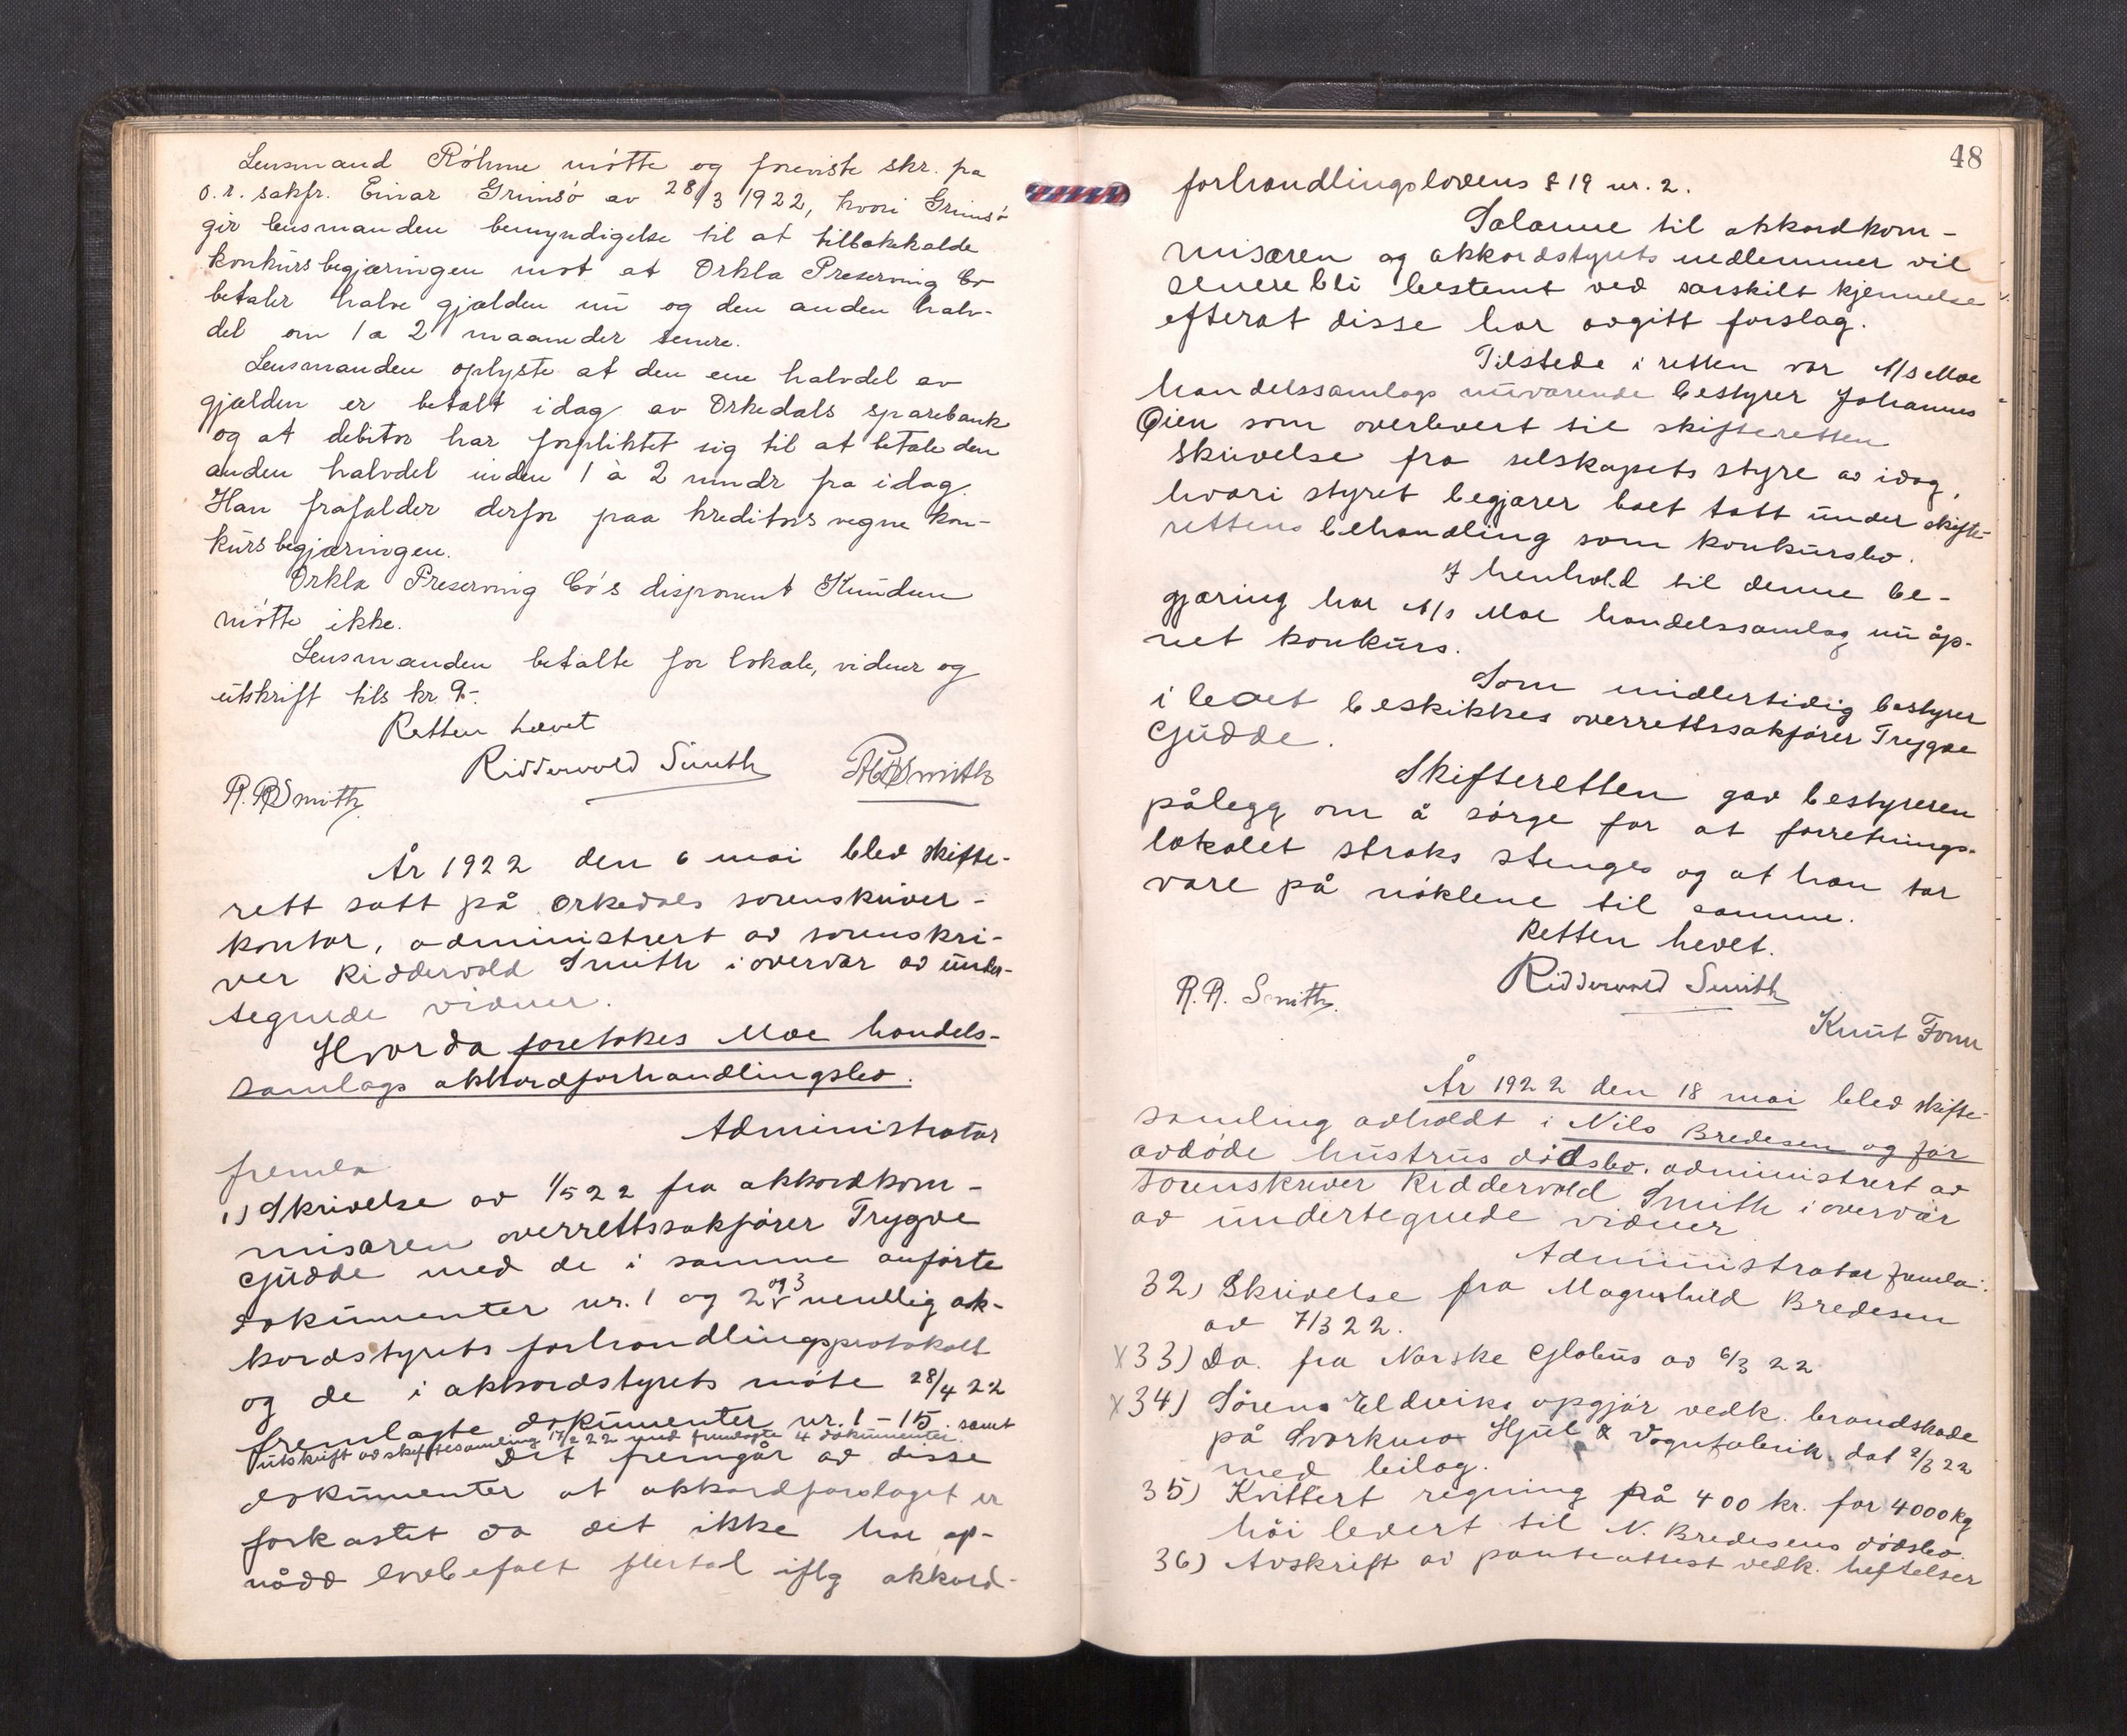 Lensmand Röhme mötte og foreviste skr. fra
o.r. sakfr. Einar Grimsö av 28/3 1922, hvori Grimsö
gir lensmanden bemyndigelse til at tilbakekalde
konkursbegjæringen mot at Orkla Preserving Co
betaler halve gjælden nu og den anden halv-
del om 1 a 2 maaneder senere.
Lensmanden oplyste at den ene halvdel av
gjælden er betalt idag av Orkedals sparebank
og at debitor har forpliktet sig til at betale den
anden halvdel inden 1 à 2 mndr fra idag.
Han frafalder derfor paa kreditors vegne kon-
kursbegjæringen.
Orkla Preserving Co's disponent Knudsen
mötte ikke.
Lensmanden betalte for lokale, vidner og
utskrift tils kr 9.-
Retten hævet
Ridderwold Smith
R.R. Smith
År 1922 den 6 mai blev skifte-
rett satt på Orkedals sorenskriver-
kontor, administrert av sorenskri-
ver Riddervold Smith i overvær av under-
tegnede vidner.
Hvorda foretakes Moe handels-
samlags akkordforhandlingsbo.
Administrator
fremla
1) Skrivelse av 1/5 22 fra akkordkom-
misæren overrettssakförer Trygve
Gjudde med de i samme anförte
dokumenter nr. 1 og 2 og 3 nemlig ak-
kordstyrets forhandlingsprotokoll
og de i akkordstyrets möte 28/4 22
fremlagte dokumenter nr. 1 - 15. samt
utskrift av skiftesamling 17/2 22 med fremlagte 4 dokumenter.
Det fremgår av disse
dokumenter at akkordforslaget er
forkastet da det ikke har op-
nådd lovbefalt flertal iflg akkord-
48
forhandlingslovens § 19 nr. 2.
Salarne til akkordkom-
misæren og akkordstyrets medlemmer vil
senere bli bestemt ved særskilt kjennelse
efterat disse har avgitt forslag.
Tilstede i retten var A/S Moe
handelssamlags nuværende bestyrer Johannes
Öien som overlevert til skifteretten
skrivelse fra selskapets styre av idag,
hvori styret begjærer boet tatt under skifte-
rettens behandling som konkursbo.
I henhold til denne be-
gjæring har A/s Moe handelssamlag nu åp-
net konkurs.
Som midlertidig bestyrer
i boet beskikkes overrettssakförer Trygve
Gjudde.
Skifteretten gav bestyreren
pålegg om å sörge for at forretnings-
lokalet straks stenges og at han tar
vare på nöklene til samme.
Retten hevet.
Ridderwold Smith
R.R. Smith.
Knut Fonn
År 1922 den 18 mai blev skifte-
samling avholdt i Nils Bredesen og för
avdöde hustrus dödsbo, administrert av
sorenskriver Riddervold Smith i overvär
av undertegnede vidner
Administrator fremla:
32) Skrivelse fra Magnhild Bredesen
av 7/3 22.
x 33) Do. fra Norske Globus av 6/3 22
x 34) Sörens Eldviks opgjör vedk. brandskade
på Svorkmo Hjul & Vognfabrik. dat 2/3 22
med bilag.
35) Kvittert regning på 400 kr. for 4000 kg
höi levert til N. Bredesens dödsbo.
36) Avskrift av panteattest vedk. heftelser